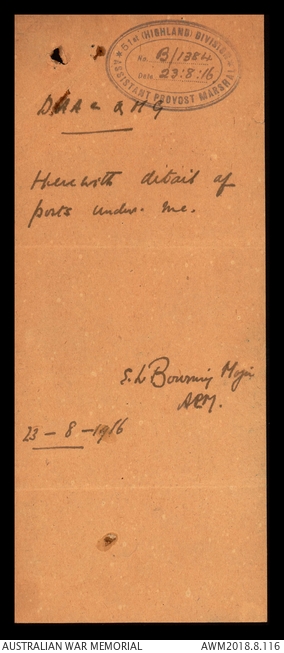 51ST (HIGHLAND) DIVISION
No. B/1384
Date. 23:8:16
ASSISTANT PROVOST MARSHAL
DAA & QMG
Herewith detail of
posts under me.
Major
APM.
23 - 8 - 1916
AUSTRALIAN WAR MEMORIAL
AWM2018.8.116